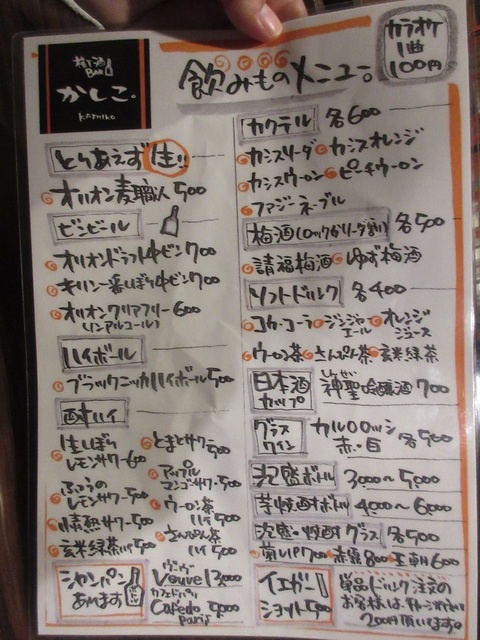 梅酒
BAR
かしこ。
飲みものメニュー。
カラオケ
1曲
100円
とりあえず生!!
オリオン麦職人 500
ビンビール
オリオンドラフト中ビン 700
キリン一番しぼり中ビン 700
オリオンクリアフリー 600
(ノンアルコール)
ハイボール
ブラックニッカハイボール 500
酎ハイ
生しぼり
レモンサワー 600
とまとサワー 500
ふつうの
レモンサワー 500
アップル
マンゴサワー 500
情熱サワー 500
ウーロン茶
ハイ 500
玄米緑茶ハイ 500
さんぴん茶
ハイ 500
シャンパン
あります
Veuve 13,000
カフェドパリ
Cafe de Paris 5,000
カクテル 各600
カシスソーダ カシスオレンジ
カシスウーロン ピーチウーロン
ファジーネーブル
梅酒(ロックorソーダ割り) 各500
請福梅酒 ゆず梅酒
ソフトドリンク 各400
コカ・コーラ ジンジャーエール オレンジジュース
ウーロン茶 さんぴん茶 玄米緑茶
日本酒
カップ
神聖吟醸酒 700
グラス
ワイン
カルロロッシ
赤・白 各500
泡盛ボトル 3000~5,000
芋焼酎ボトル 4000~6000
泡盛・焼酎グラス 各500
赤霧 800 玉朝 600
イエガー
ショット 500
単品ドリンク注文の
お客様は、チャージ
200円頂いています。